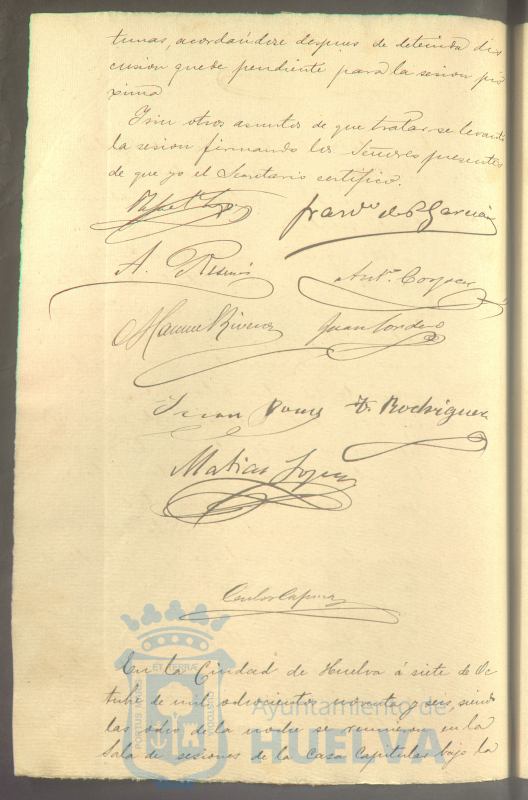 tunas, acordandose despues de detenida dis
cusion quede pendiente para la sesion pró
xima
Y sin otros asuntos de que tratar se levantó
la sesion firmando los Señores presentes
de que yo el Secretario certifico.
Rafael Franco de P. Garcia
A.
Ant.
Manuel Juan Cordero
Juan F. Rodriguez
Matias Lopez
Carlos
En la Ciudad de Huelva á siete de Oc
tubre de mil ochocientos noventa y seis, siendo
las ocho de la noche se reunieron en la
Sala de sesiones de la Casa Capitular bajo la
PORTUS MARIS
ET TERRÆ
CUSTODIA
Ayuntamiento de
HUELVA